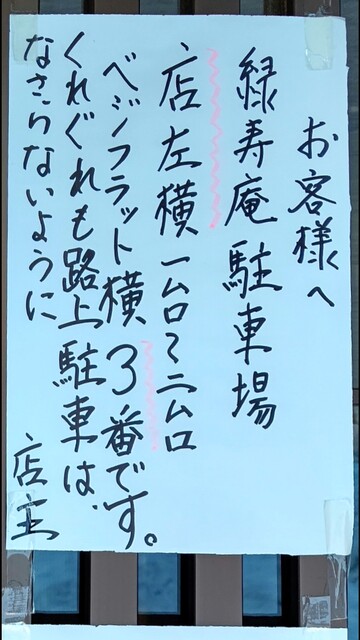 お客様へ
緑寿庵駐車場
店左横一ム口〜二ム口
ベジノフラット横３番です。
くれぐれも路上駐車は、
なさらないように
店主